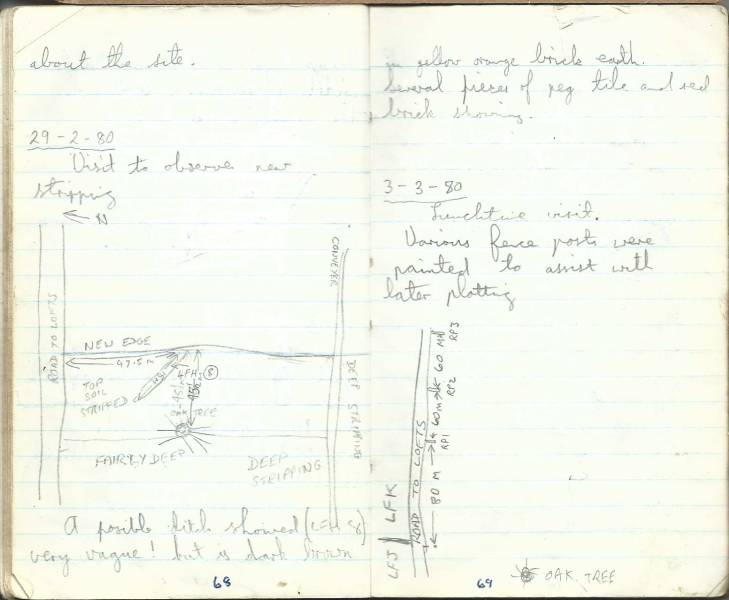 about the site.
29-2-80
Visit to observe new
stripping
N
CONVEYER
ROAD TO LOFTS
NEW EDGE
47.5 m
TOP
SOIL
STRIPPED
OAK TREE
DEEP STRIPPING
FAIRLY DEEP
DEEP
STRIPPING
A posible ditch showed
very vague! but is dark brown
68
in yellow orange brick earth.
Several pieces of peg tile and red
brick showing.
3-3-80
Lunchtime visit.
Various fence posts were
painted to assist with
later plotting
LFJ LFK
ROAD TO LOFTS
80 M
RP1
60 m
RP2
60 M
RP3
69
OAK TREE